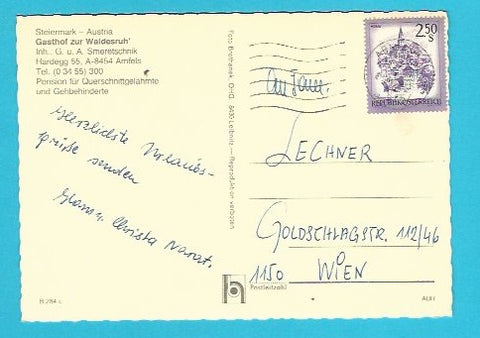 Steiermark – Austria
Gasthof zur Waldesruh'
Inh.: G. u. A. Smeretschnik
Hardegg 55, A-8454 Arnfels
Tel. (0 34 55) 300
Pension für Querschnittgelähmte
und Gehbehinderte
Herzlichste Urlaubs-
grüße senden
Hans u. Christa
B 2/84 c
Foto Brethanek, OHG, 8430 Leibnitz — Reproduktion verboten
2.50
S
REPUBLIK ÖSTERREICH
An Fam.
LECHNER
GOLDSCHLAGSTR. 112/46
1150 WIEN
Postleitzahl